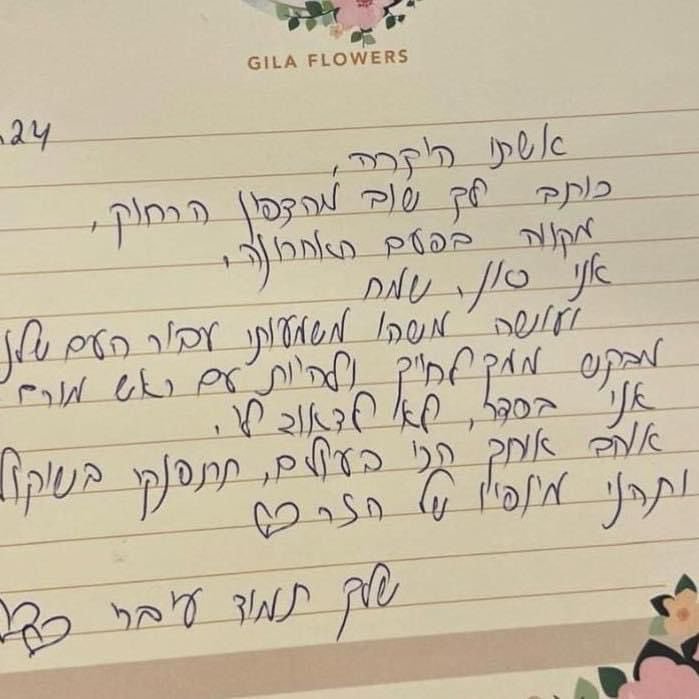 GILA FLOWERS
.24
אשתי היקרה,
כותב לך שוב מהצפון הרחוק,
מקווה בפעם האחרונה,
אני כאן, שמח
ועושה משהו משמעותי עבור העם שלנ
מבקש ממך לחייך ולהיות עם ראש מורם
אני בסדר, לא לדאוג לי.
אוהב אותך הכי בעולם, תתפנקי בשוקול
ותהני מיופיו של הזר
שלך תמיד